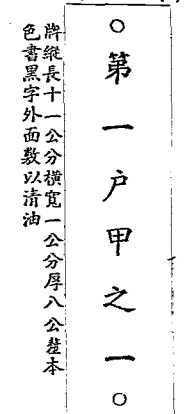 ○第一户甲之一○
牌縱長十一公分橫寬一公分厚八公釐本
色書黑字外面敷以清油